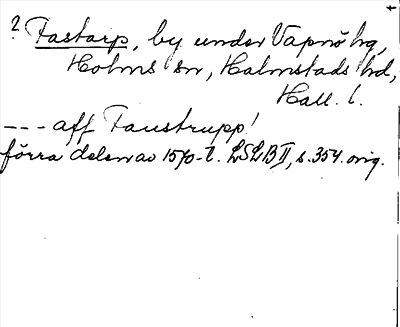 ? Fastarp, by under Vapnö hg,
Holms sn, Halmstads hd,
Hall. l.
--- aff Faustrupp!
förra delen av 1570-t. LSLB II, s. 354. orig.